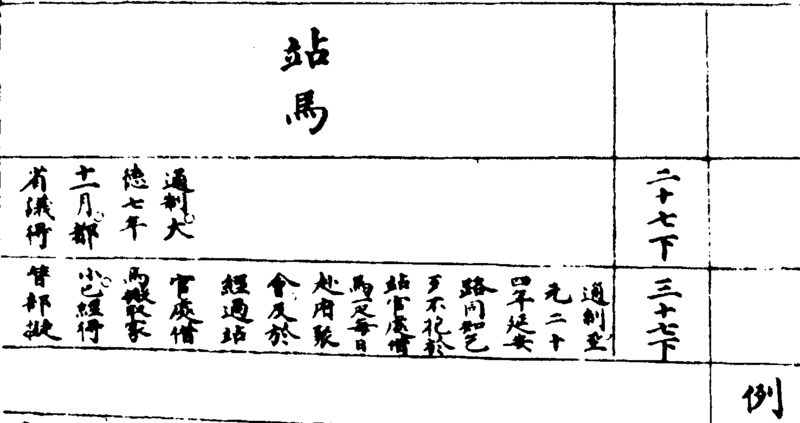 例
二十七下
三十七下
站馬
通制大
德七年
十一月都
省議得
通制至
元二十
四年延安
路同知乞
歹不於
站官處借
馬一疋每日
赴府聚
會及於
經過站
官處借
馬搬取家
小已經得
替部擬